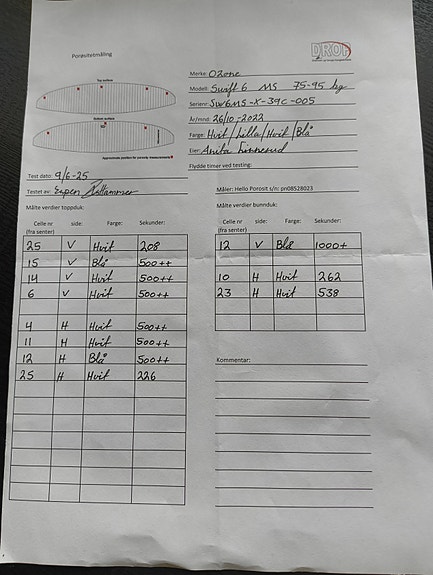 Porøsitetmåling
DROF
Top surface
Bottom surface
Approximate position for porosity measurements
Merke: Ozone
Modell: Swift 6 MS 75-95 kg
Serienr: SW6MS-X-39C-005
År/mnd: 26/10-2022
Farge: Hvit/Lilla/Hvit/Blå
Eier: Anita
Flydde timer ved testing:
Test dato: 9/6-25
Testet av: Espen
Måler: Hello Porosit s/n: pn08528023
Målte verdier toppduk:
Celle nr side: Farge: Sekunder:
(fra senter)
25 V Hvit 208
15 V Blå 500++
14 V Hvit 500++
6 V Hvit 500++
4 H Hvit 500++
11 H Hvit 500++
12 H Blå 500++
25 H Hvit 226
Målte verdier bunnduk:
Celle nr side: Farge: Sekunder:
(fra senter)
12 V Blå 1000+
10 H Hvit 262
23 H Hvit 538
Kommentar: